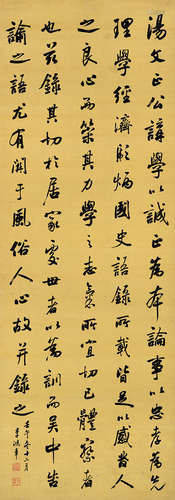 湯文正公講學以誠正為本論事以忠孝為先
理學經濟彪炳國史語錄所載皆足以感發人
之良心而築其力學之志氣所宜切己體察者
也茲錄其切於居家處世者以為訓而吳中告
諭之語尤有關于風俗人心故并錄之
壬午冬十二月
李鴻章